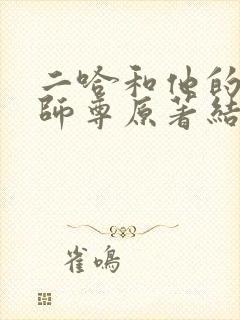 二哈和他的
師尊原著結
雀鳴